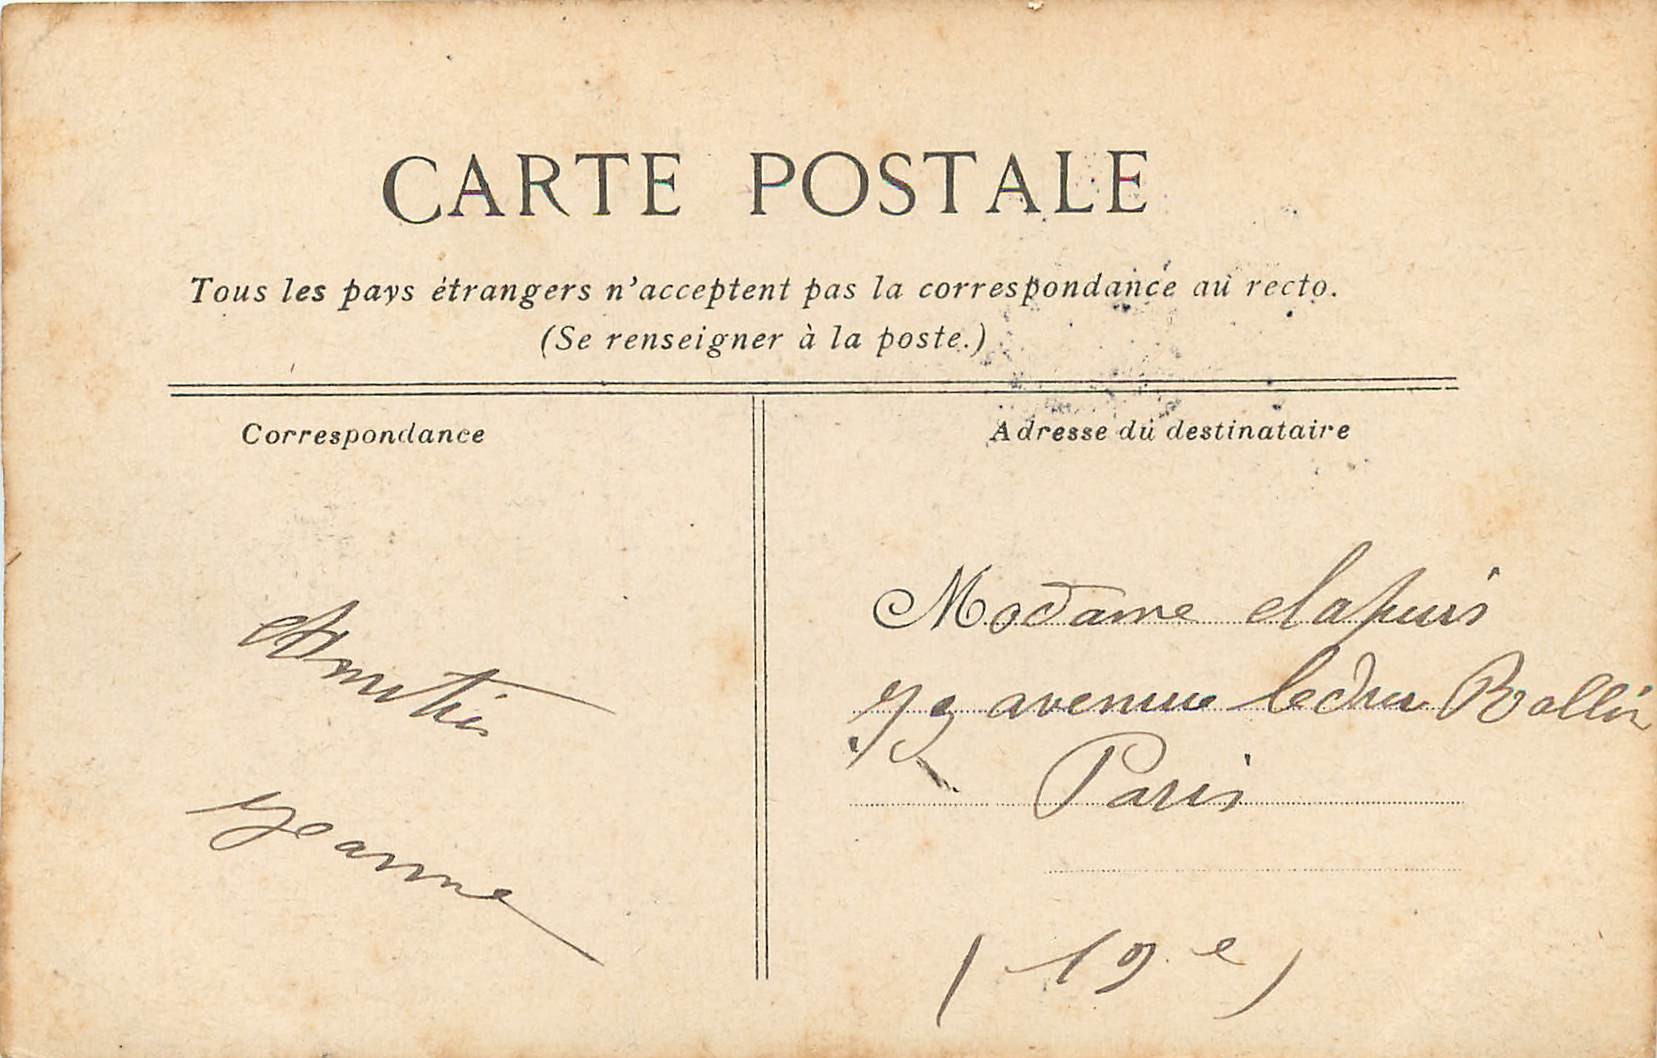 CARTE POSTALE
Tous les pays étrangers n'acceptent pas la correspondance au recto.
(Se renseigner à la poste.)
Correspondance
Adresse du destinataire
Amitiés
Jeanne
Madame
avenue Ledru Rollin
Paris
(19e)